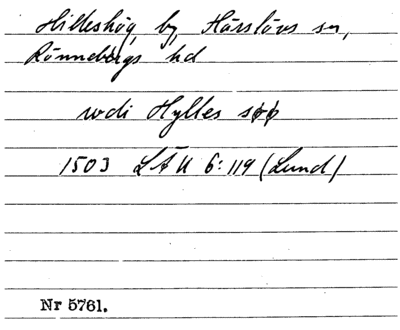 Hilleshög, by, Härslövs sn,
Rönnebergs hd
wdi Hylles søø
1503 LÄU 6:119 (Lund)
Nr 5761.